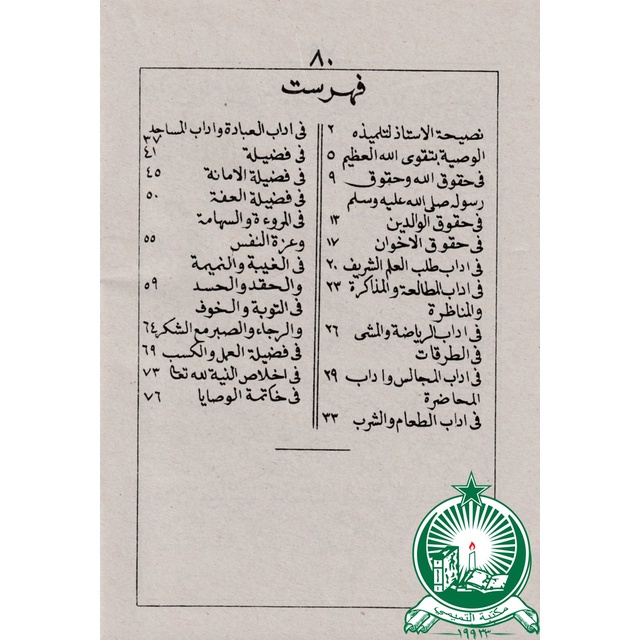 ٨٠
فهرست
نصيحة الاستاذ لتلميذه ٢
الوصية بتقوى الله العظيم ٥
فى حقوق الله وحقوق ٩
رسوله صلى الله عليه وسلم
فى حقوق الوالدين ١٣
فى حقوق الاخوان ١٧
فى اداب طلب العلم الشريف ٢٠
فى اداب المطالعة والمذاكرة ٢٣
والمناظرة
فى اداب الرياضة والمشى ٢٦
فى الطرقات
فى اداب المجالس واداب ٢٩
المحاضرة
فى اداب الطعام والشرب ٣٣
فى اداب العبادة واداب المساجد
٣٧
فى فضيلة ٤١
فى فضيلة الامانة ٤٥
فى فضيلة العفة ٥٠
فى المروءة والسهامة
وعزة النفس ٥٥
فى الغيبة والنميمة
والحقد والحسد ٥٩
فى التوبة والخوف
والرجاء والصبر مع الشكر ٦٤
فى فضيلة العمل والكسب ٦٩
فى اخلاص النية لله تعالى ٧٣
فى خاتمة الوصايا ٧٦
مكتبة التميمي
١٩٩٣